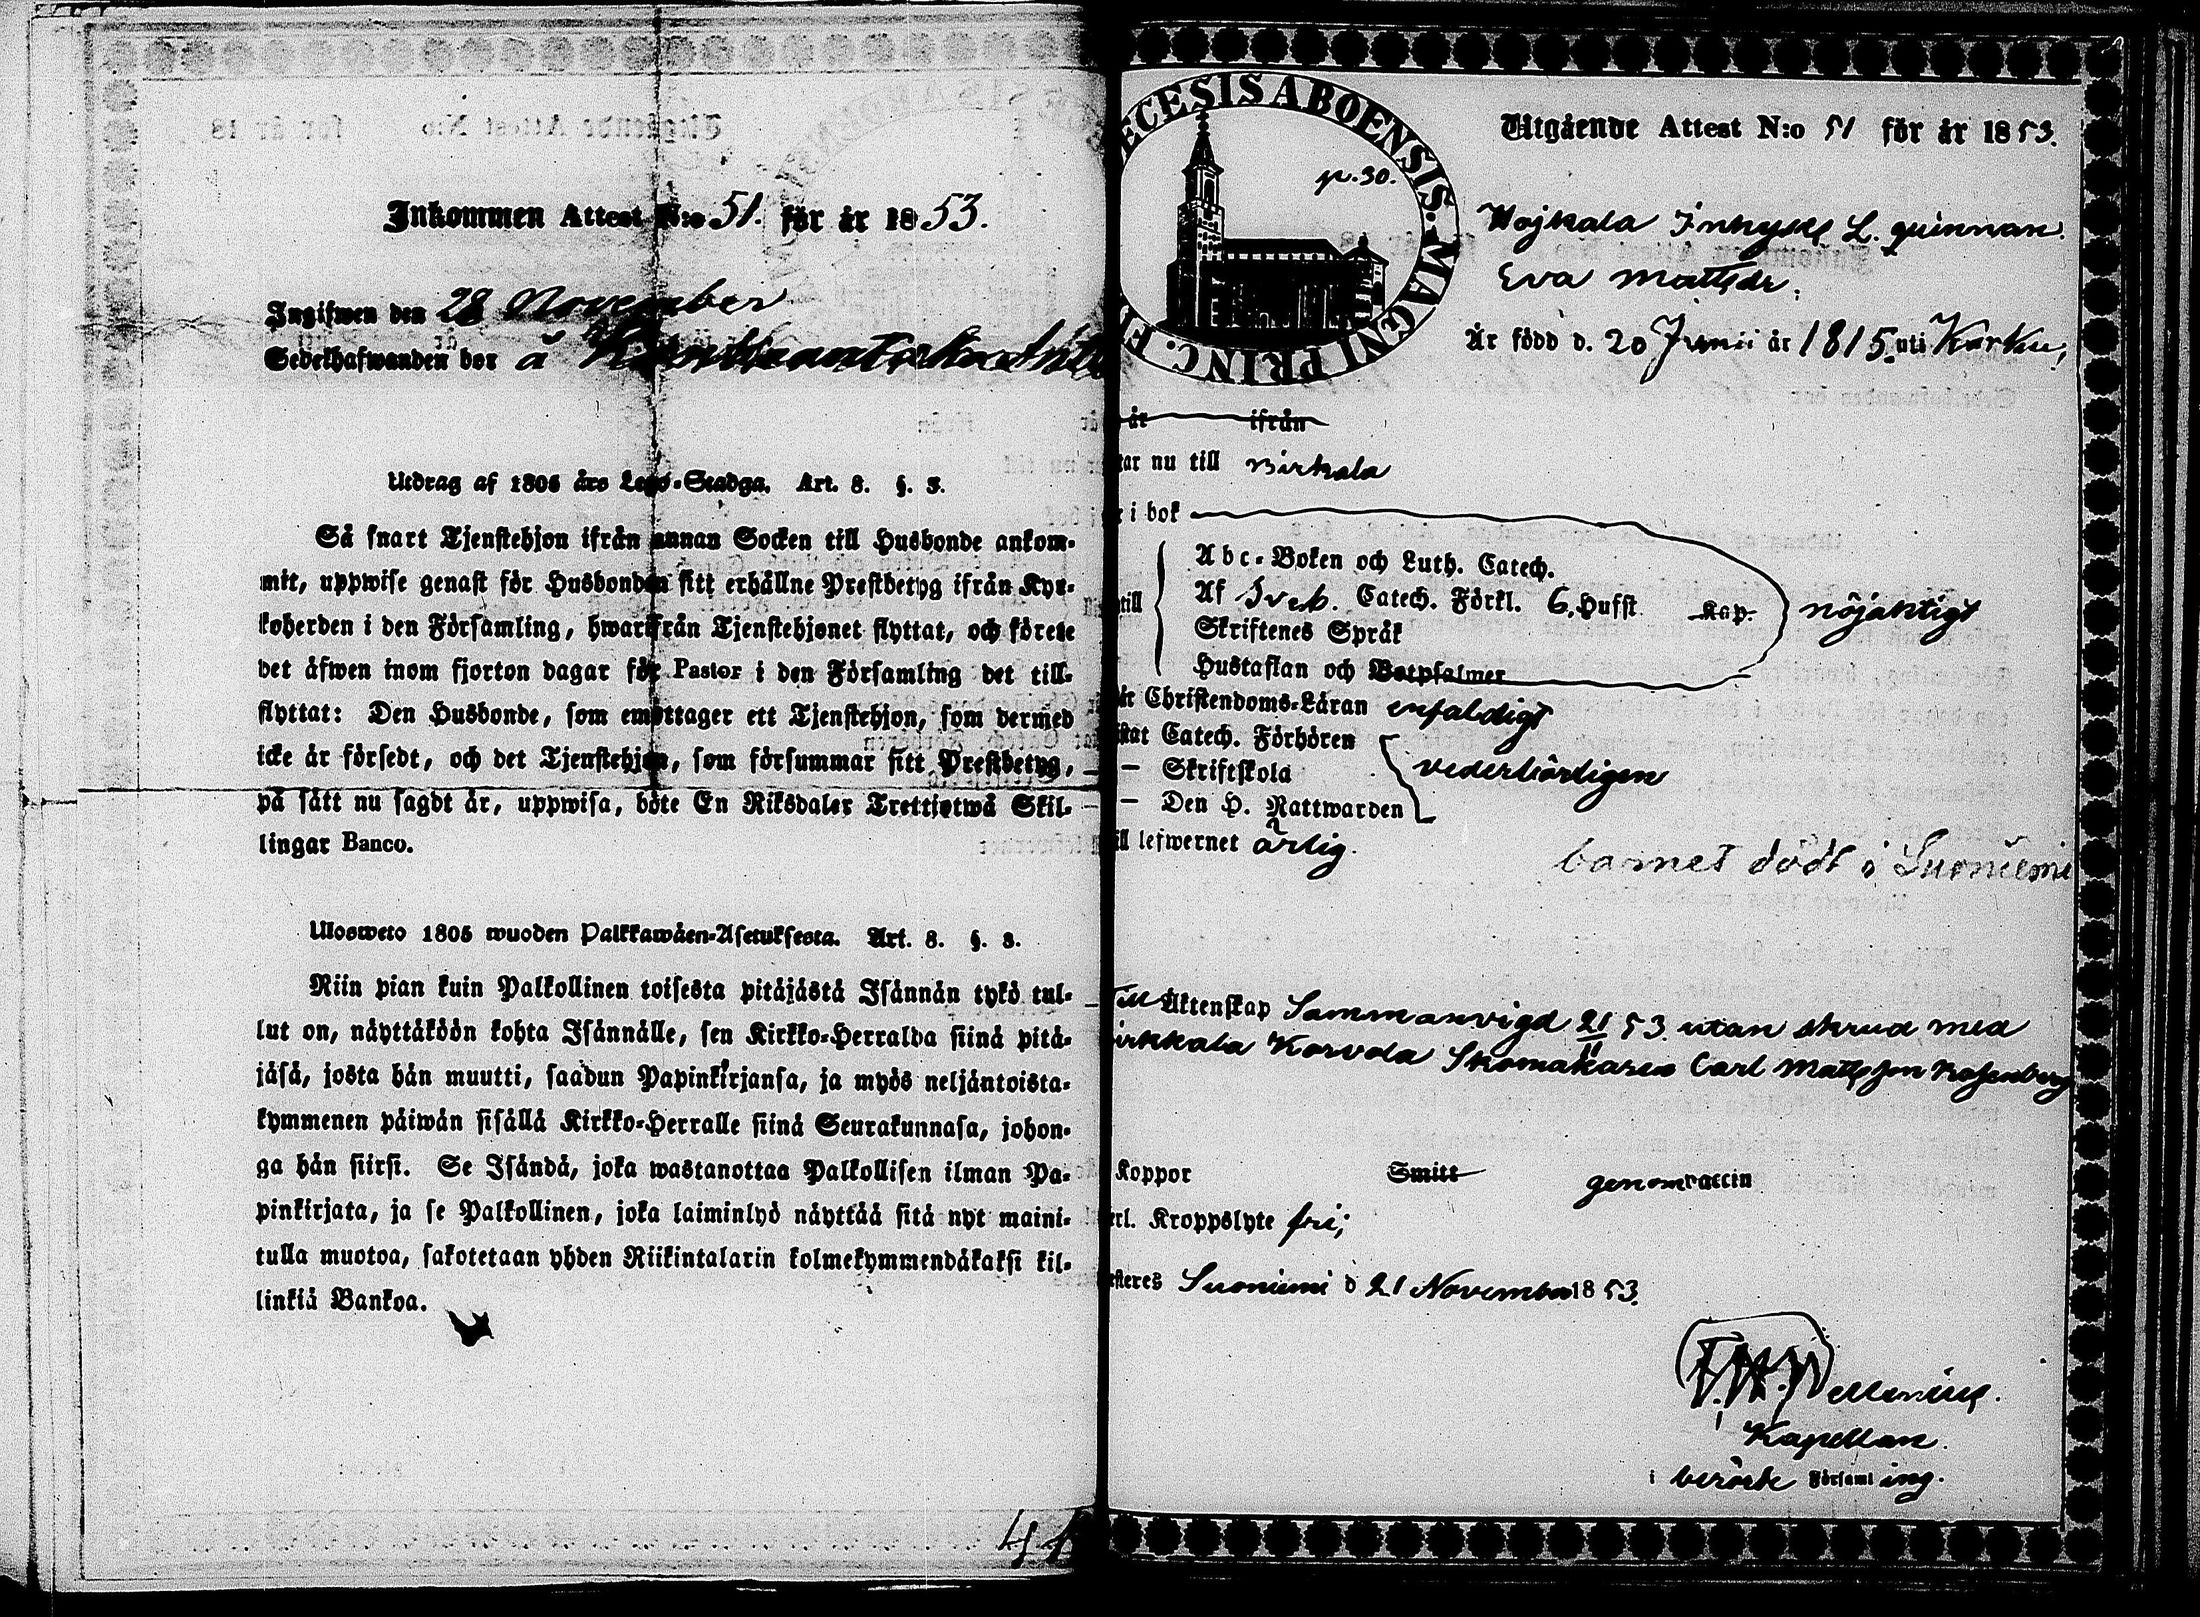 Inkommen Attest N:o 51. för år 1853.
Ingifwen den 28 November
Sedelhafwanden bor å
Utdrag af 1805 års Lego-Stadga. Art. 8. §. 3.
Så snart Tjenstehjon ifrån annan Socken till Husbonde ankom-
mit, uppwise genast för Husbonden sitt erhållne Prestbetyg ifrån Kyr-
koherden i den Församling, hwarifrån Tjenstehjonet flyttat, och förete
det äfwen inom fjorton dagar för Pastor i den Församling det till-
flyttat: Den Husbonde, som emottager ett Tjenstehjon, som dermed
icke är försedt, och det Tjenstehjon, som försummar sitt Prestbetyg,
på sätt nu sagdt är, uppwisa, böte En Riksdaler Trettiotwå Skil-
lingar Banco.
Ulosweto 1805 wuoden Palkkawäen-Asetuksesta. Art. 8. §. 3.
Niin pian kuin Palkollinen toisesta pitäjästä Isännän tykö tul-
lut on, näyttäköön kohta Isännälle, sen Kirkko-Herralda siinä pitä-
jäsä, josta hän muutti, saadun Papinkirjansa, ja myös neljäntoista-
kymmenen päiwän sisällä Kirkko-Herralle siinä Seurakunnasa, johon-
ga hän siirsi. Se Isändä, joka wastanottaa Palkollisen ilman Pa-
pinkirjata, ja se Palkollinen, joka laiminlyö näyttää sitä nyt maini-
tulla muotoa, sakotetaan yhden Riikintalarin kolmekymmendäkaksi kil-
linkiä Bankoa.
ECESIS ABOENSIS. MAGNI PRINC. F
p. 30.
Utgående Attest N:o 51 för år 1853.
Wojkala Inhyses L. quinnan
Eva Mattsdr.
Är född d. 20 Junii år 1815. uti Karku,
år ifrån
tar nu till Birkala
i bok
Abc-Boken och Luth. Catech.
till Af Sveb. Catech. Förkl. 6. Hufst. Kap. nöjaktigt
Skriftenes Språk
Hustaflan och Botpsalmer
Christendoms-Läran enfaldigt
stat Catech. Förhören
— Skriftskola vederbörligen
— Den H. Nattwarden
ill lefwernet ärlig.
barnet dödt i Suoniemi
Till Äktenskap Sammanvigd 21/11 53. utan skrud med
irkkala Korvola Skomakaren Carl Mattsson Rosenberg
Koppor Smitt genom vaccin
erl. Kroppslyte fri;
steres Suoniemi d 21 November 1853.
Kapellan.
i berörde Församling.